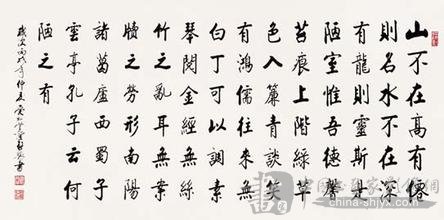 山不在高有僊
則名水不在深
有龍則靈斯是
陋室惟吾德馨
苔痕上階綠草
色入簾青談笑
有鴻儒往來無
白丁可以調素
琴閱金經無絲
竹之亂耳無案
牘之勞形南陽
諸葛廬西蜀子
雲亭孔子云何
陋之有
歲次丙戌年仲夏
china-shjyx.com